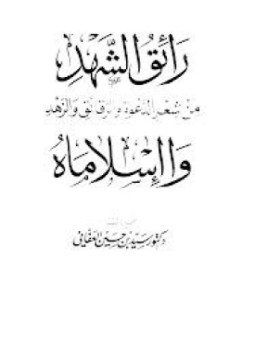 رَائِقُ الشَّهْدِ
مِنْ شِعْرِ الدَّعْوَةِ وَالرَّقَائِقِ وَالزُّهْدِ
وَا إِسْلَامَاهُ
دكتور سيد بن حسين العفاني